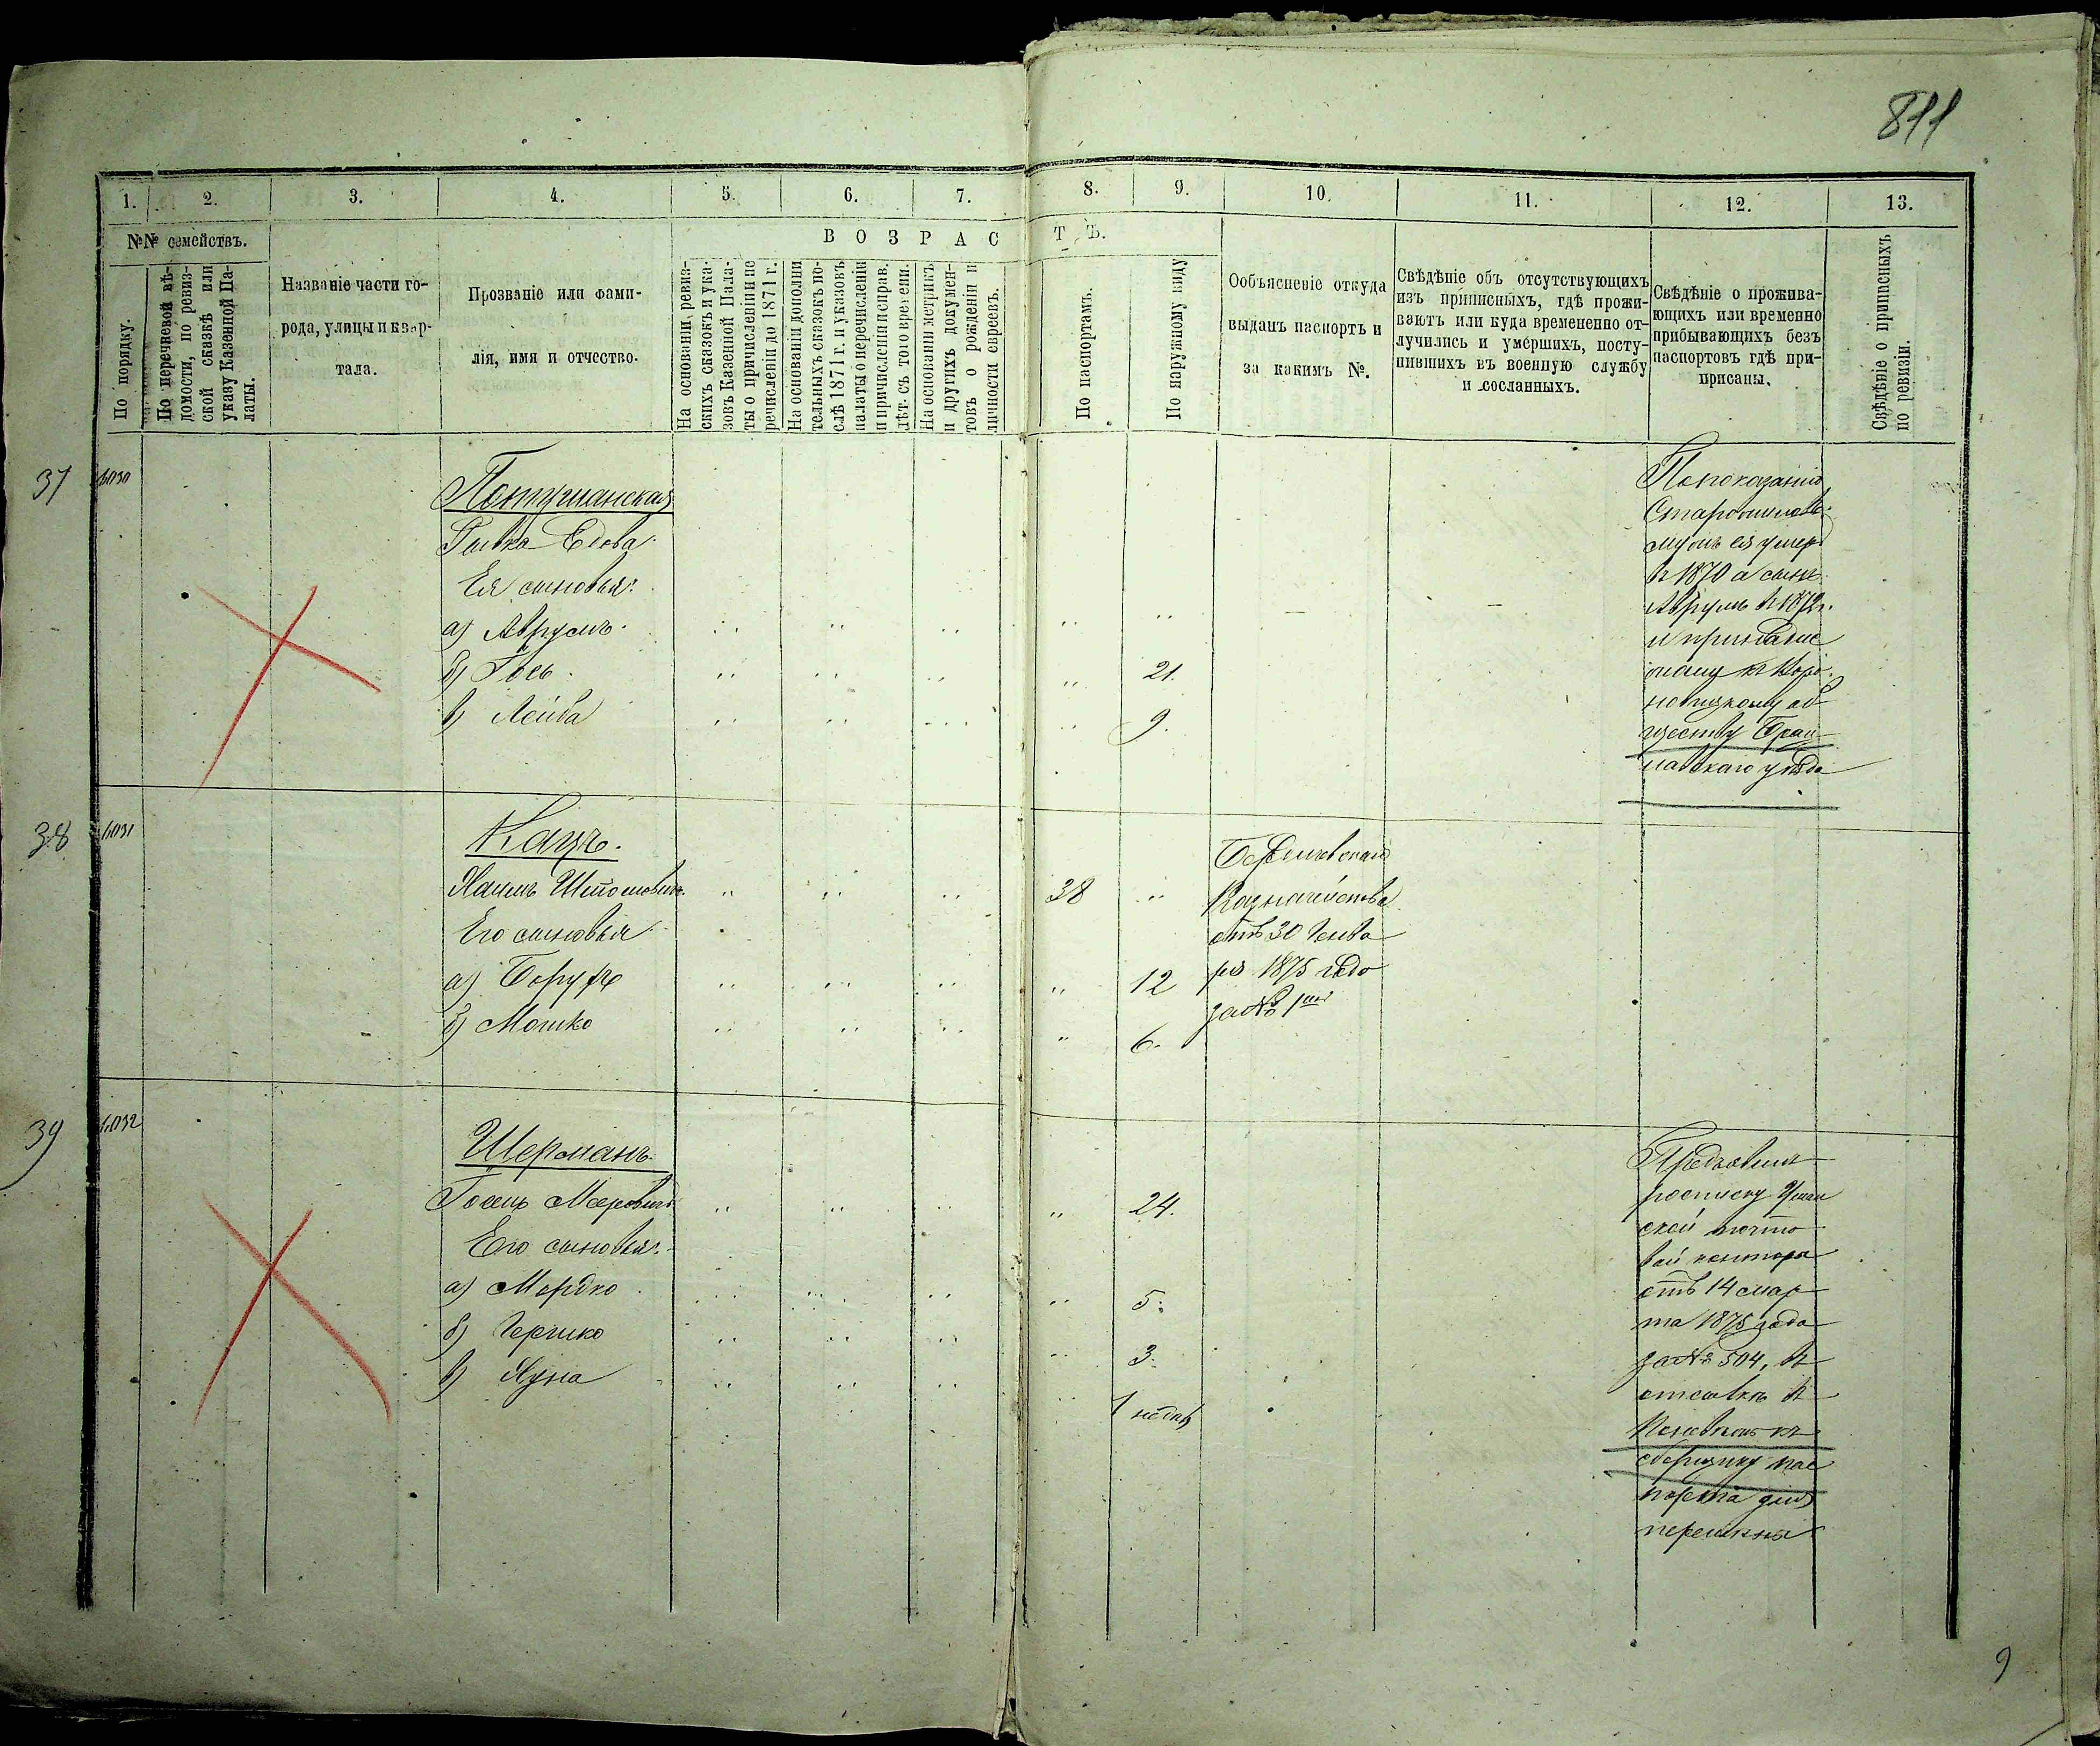 811
1. 2. 3. 4. 5. 6. 7. 8. 9. 10. 11. 12. 13.
№№ семействъ.
ВОЗРАСТЪ.
По порядку.
По перечневой вѣ-
домости, по ревиз-
ской сказкѣ или
указу Казенной Па-
латы.
Названіе части го-
рода, улицы и квар-
тала.
Прозваніе или фами-
лія, имя и отчество.
На основаніи ревиз-
скихъ сказокъ и ука-
зовъ Казенной Пала-
ты о причисленіи и пе
речисленіи до 1871 г.
На основаніи дополни
тельныхъ сказокъ по-
слѣ 1871 г. и указовъ
палаты о перечисленіи
и причисленіи исправ.
лѣт. съ того времени.
На основаніи метрикъ
и другихъ докумен-
товъ о рожденіи и
личности евреевъ.
По паспортамъ.
По наружному виду
Ообъясненіе откуда
выданъ паспортъ и
за какимъ №.
Свѣдѣніе объ отсутствующихъ
изъ приписныхъ, гдѣ прожи-
ваютъ или куда временно от-
лучились и умершихъ, посту-
пившихъ въ военную службу
и сосланныхъ.
Свѣдѣніе о прожива-
ющихъ или временно
прибывающихъ безъ
паспортовъ гдѣ при-
присаны.
Свѣдѣніе о приписныхъ
по ревизіи.
37 6030
Ея сыновья:
а) Аврумъ
б) Іось 21.
в) Лейба 9.
По показанію
мужъ ея умеръ
въ 1870 а сынъ
Аврумъ въ 1872 г.
ществу
уѣзда
38 6031
Кацъ.
Хаимъ 38
Его сыновья
а) Борухъ 12
б) Мошко 6.
Казначейства
отъ 30 Генва
ря 1875 года
за №
39 6032
Шерманъ.
24.
Его сыновья:
а) Мордко 5.
б) Гершко 3.
в) 1
росписку Уман
ской почто
вой конторы
отъ 14 мар
та 1875 года
за № 504, въ
сборщику пас
порта для